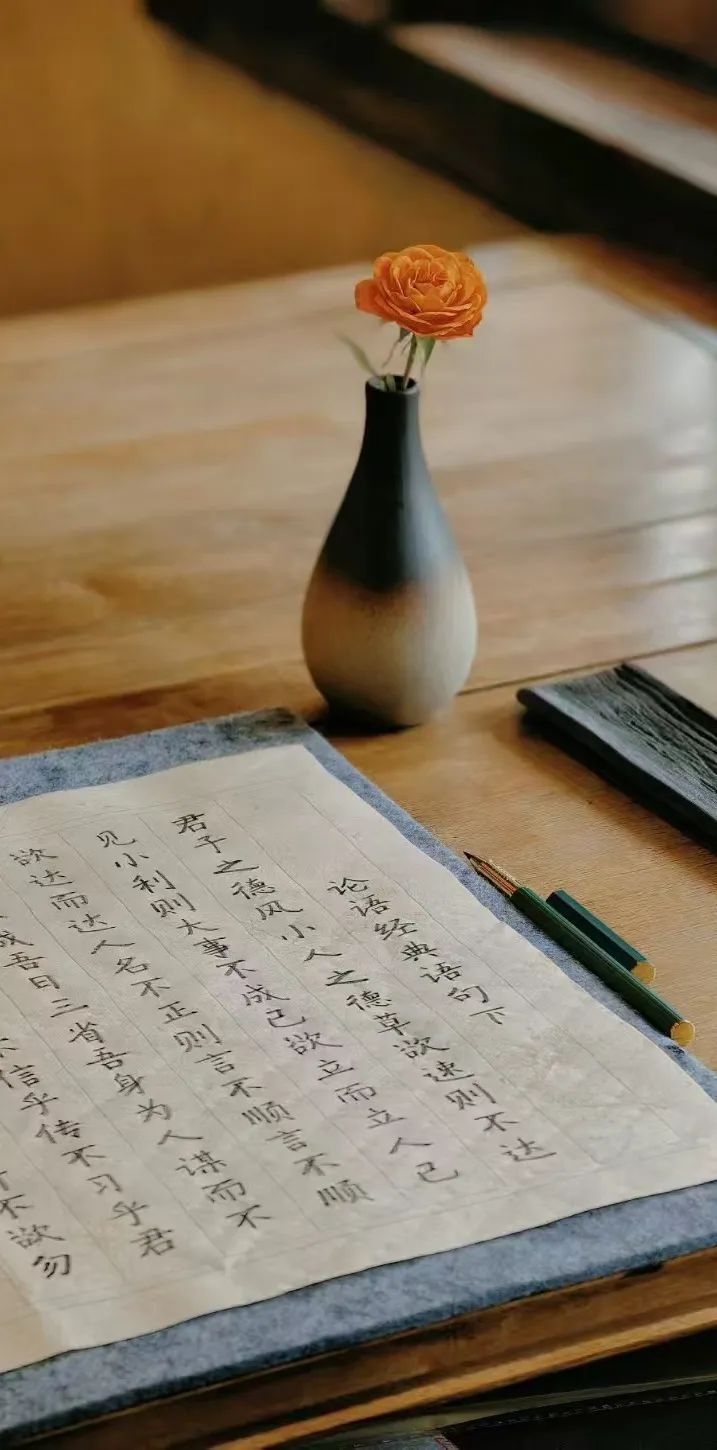 论语经典语句下
君子之德风小人之德草欲速则不达
见小利则大事不成己欲立而立人己
欲达而达人名不正则言不顺言不顺
成吾日三省吾身为人谋而不
信乎传不习乎君
不欲勿